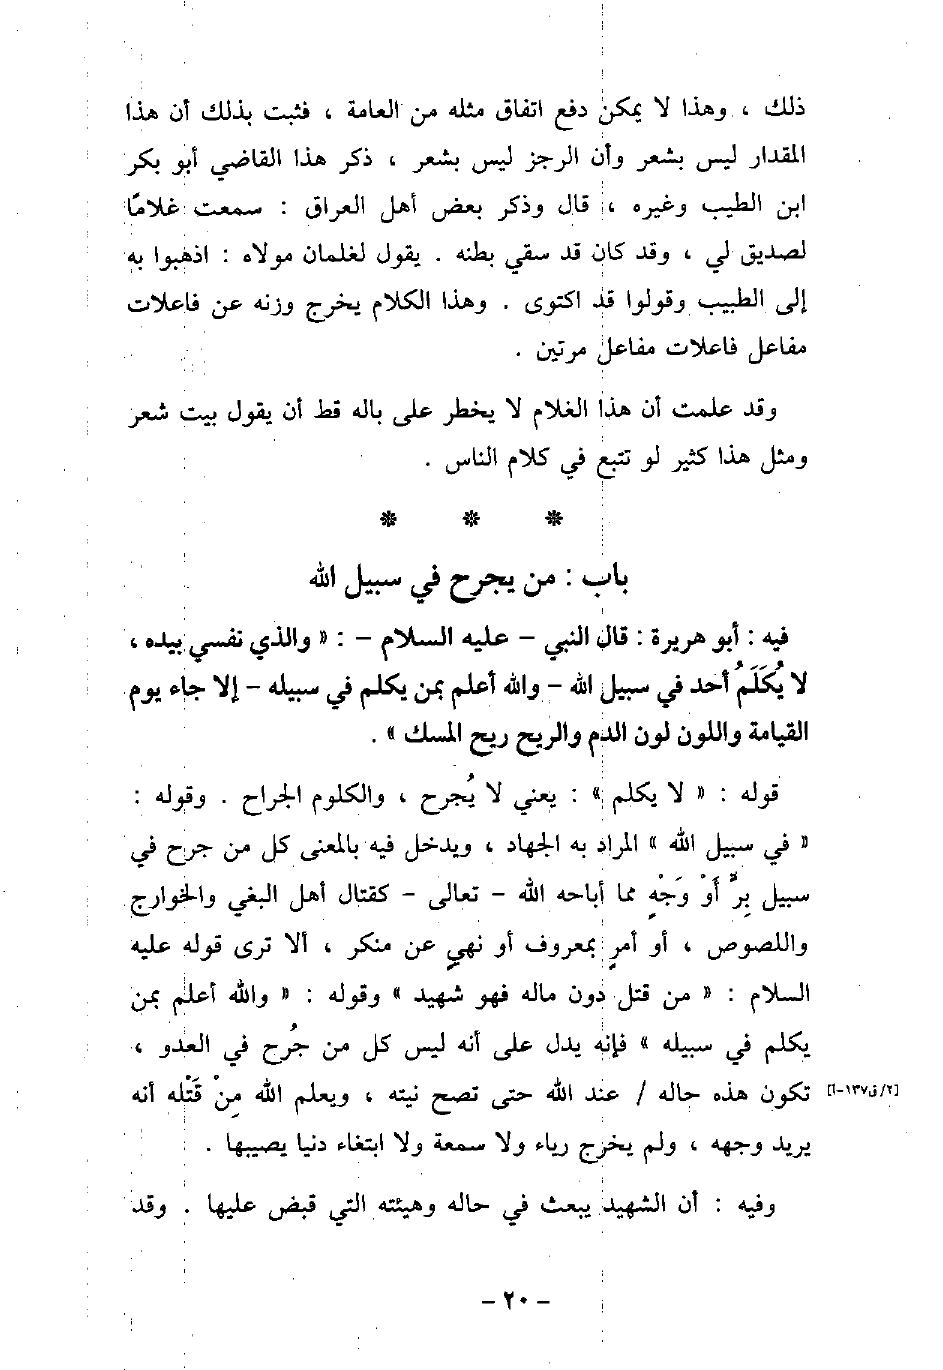 ذلك ، وهذا لا يمكن دفع اتفاق مثله من العامة ، فثبت بذلك أن هذا
المقدار ليس بشعر وأن الرجز ليس بشعر ، ذكر هذا القاضي أبو بكر
ابن الطيب وغيره ، قال وذكر بعض أهل العراق : سمعت غلامًا
لصديق لي ، وقد كان قد سقي بطنه . يقول لغلمان مولاه : اذهبوا به
إلى الطبيب وقولوا قد اكتوى . وهذا الكلام يخرج وزنه عن فاعلات
مفاعل فاعلات مفاعل مرتين .
وقد علمت أن هذا الغلام لا يخطر على باله قط أن يقول بيت شعر
ومثل هذا كثير لو تتبع في كلام الناس .
* * *
باب : من يجرح في سبيل الله
فيه : أبو هريرة : قال النبي - عليه السلام - : « والذي نفسي بيده ،
لا يُكَلَمُ أحد في سبيل الله - والله أعلم بمن يكلم في سبيله - إلا جاء يوم
القيامة واللون لون الدم والريح ريح المسك » .
قوله : « لا يكلم » : يعني لا يُجرح ، والكلوم الجراح . وقوله :
« في سبيل الله » المراد به الجهاد ، ويدخل فيه بالمعنى كل من جرح في
سبيل بِرٍّ أَوْ وَجْهٍ مما أباحه الله - تعالى - كقتال أهل البغي والخوارج
واللصوص ، أو أمرٍ بمعروف أو نهيٍ عن منكر ، ألا ترى قوله عليه
السلام : « من قتل دون ماله فهو شهيد » وقوله : « والله أعلم بمن
يكلم في سبيله » فإنه يدل على أنه ليس كل من جُرح في العدو ،
تكون هذه حاله / عند الله حتى تصح نيته ، ويعلم الله مِنْ قَتْله أنه [٢/ق١٣٧-أ]
يريد وجهه ، ولم يخرج رياء ولا سمعة ولا ابتغاء دنيا يصيبها .
وفيه : أن الشهيد يبعث في حاله وهيئته التي قبض عليها . وقد
- ٢٠ -